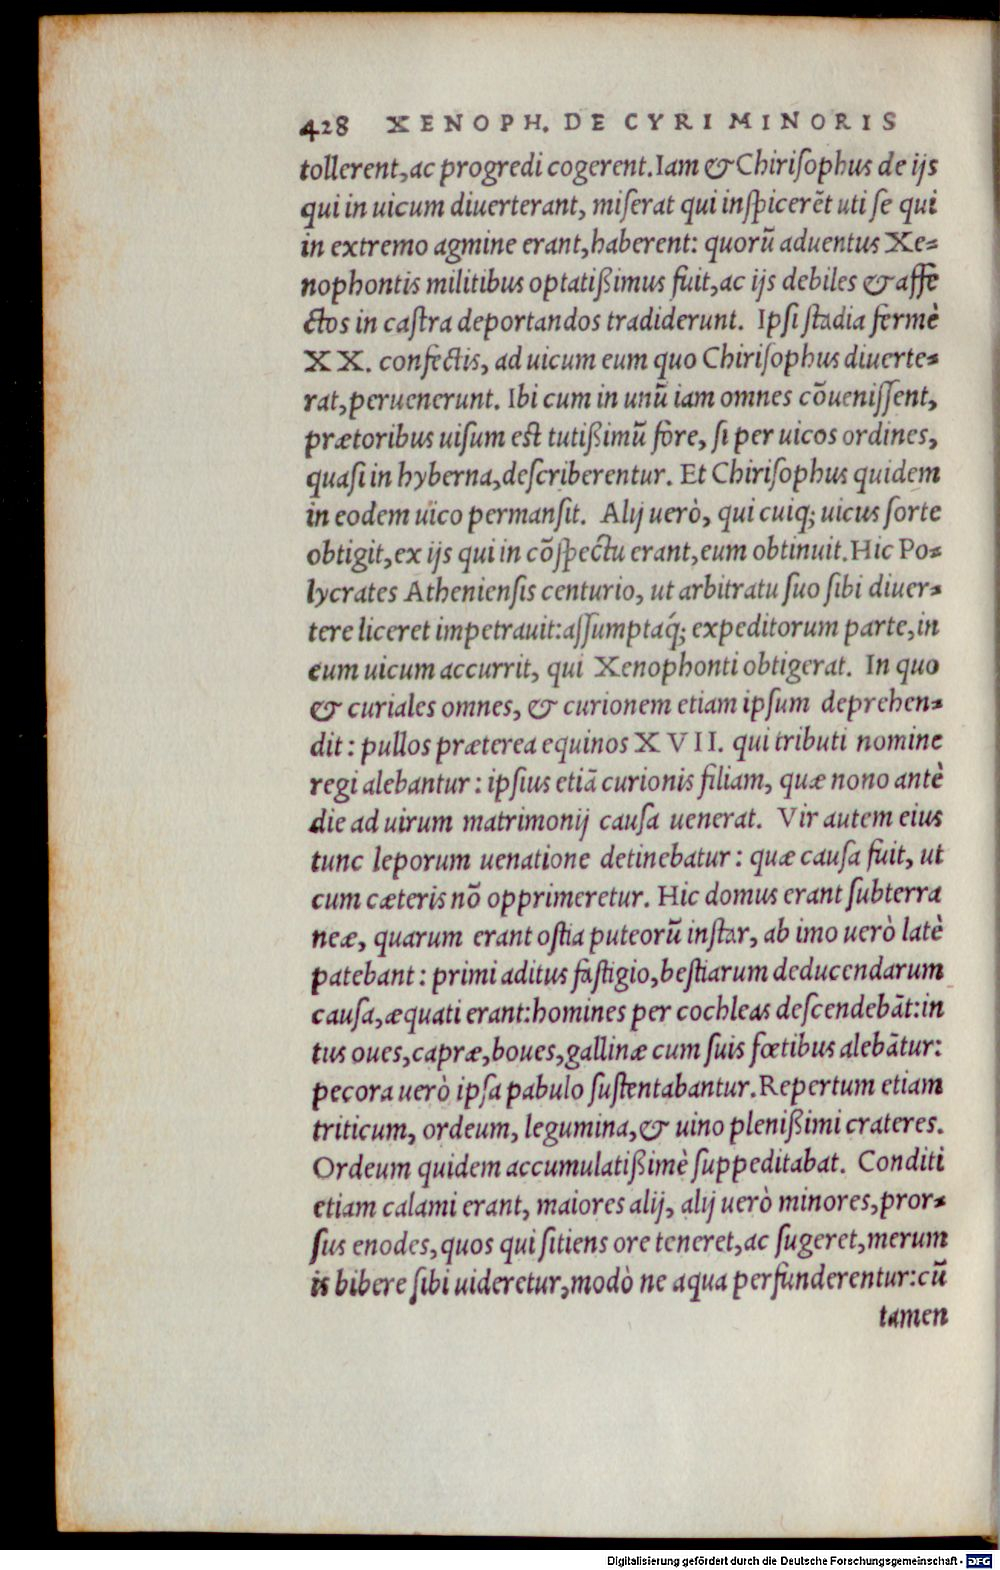 428 XENOPH. DE CYRI MINORIS
tollerent, ac progredi cogerent. Iam & Chirisophus de ijs
qui in uicum diuerterant, miserat qui inspicerēt uti se qui
in extremo agmine erant, haberent: quorū aduentus Xe=
nophontis militibus optatißimus fuit, ac ijs debiles & affe
ctos in castra deportandos tradiderunt. Ipsi stadia fermè
XX. confectis, ad uicum eum quo Chirisophus diuerte=
rat, peruenerunt. Ibi cum in unū iam omnes cōuenissent,
prætoribus uisum est tutißimū fore, si per uicos ordines,
quasi in hyberna, describerentur. Et Chirisophus quidem
in eodem uico permansit. Alij uerò, qui cuiq; uicus sorte
obtigit, ex ijs qui in cōspectu erant, eum obtinuit. Hic Po=
lycrates Atheniensis centurio, ut arbitratu suo sibi diuer=
tere liceret impetrauit: assumptaq́; expeditorum parte, in
eum uicum accurrit, qui Xenophonti obtigerat. In quo
& curiales omnes, & curionem etiam ipsum deprehen=
dit: pullos præterea equinos XVII. qui tributi nomine
regi alebantur: ipsius etiā curionis filiam, quæ nono antè
die ad uirum matrimonij causa uenerat. Vir autem eius
tunc leporum uenatione detinebatur: quæ causa fuit, ut
cum cæteris nō opprimeretur. Hic domus erant subterra
neæ, quarum erant ostia puteorū instar, ab imo uerò latè
patebant: primi aditus fastigio, bestiarum deducendarum
causa, æquati erant: homines per cochleas descendebāt: in
tus oues, capræ, boues, gallinæ cum suis fœtibus alebātur:
pecora uerò ipsa pabulo sustentabantur. Repertum etiam
triticum, ordeum, legumina, & uino plenißimi crateres.
Ordeum quidem accumulatißimè suppeditabat. Conditi
etiam calami erant, maiores alij, alij uerò minores, pror=
sus enodes, quos qui sitiens ore teneret, ac sugeret, merum
is bibere sibi uideretur, modò ne aqua perfunderentur: cū
tamen
Digitalisierung gefördert durch die Deutsche Forschungsgemeinschaft - DFG